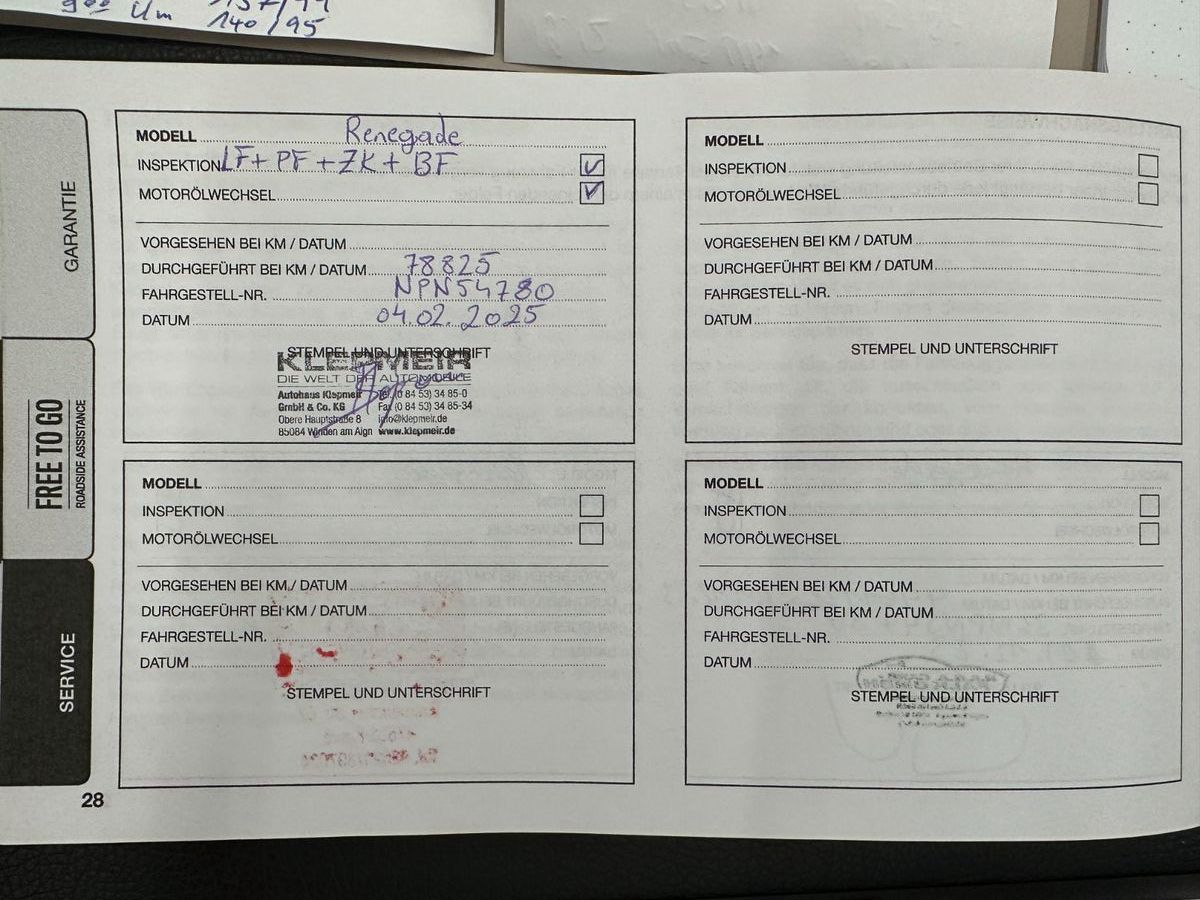 900 Um 157/99
140/95
GARANTIE
FREE TO GO
ROADSIDE ASSISTANCE
SERVICE
MODELL Renegade
INSPEKTION LF + PF + ZK + BF
MOTORÖLWECHSEL
VORGESEHEN BEI KM / DATUM
DURCHGEFÜHRT BEI KM / DATUM 78825
FAHRGESTELL-NR. NPN54780
DATUM 04.02.2025
STEMPEL UND UNTERSCHRIFT
KLEPMEIR
DIE WELT DER AUTOMOBILE
Autohaus Klepmeir Tel. (0 84 53) 34 85-0
GmbH & Co. KG Fax (0 84 53) 34 85-34
Obere Hauptstraße 8 info@klepmeir.de
85084 Winden am Aign www.klepmeir.de
MODELL
INSPEKTION
MOTORÖLWECHSEL
VORGESEHEN BEI KM / DATUM
DURCHGEFÜHRT BEI KM / DATUM
FAHRGESTELL-NR.
DATUM
STEMPEL UND UNTERSCHRIFT
MODELL
INSPEKTION
MOTORÖLWECHSEL
VORGESEHEN BEI KM / DATUM
DURCHGEFÜHRT BEI KM / DATUM
FAHRGESTELL-NR.
DATUM
STEMPEL UND UNTERSCHRIFT
MODELL
INSPEKTION
MOTORÖLWECHSEL
VORGESEHEN BEI KM / DATUM
DURCHGEFÜHRT BEI KM / DATUM
FAHRGESTELL-NR.
DATUM
STEMPEL UND UNTERSCHRIFT
28